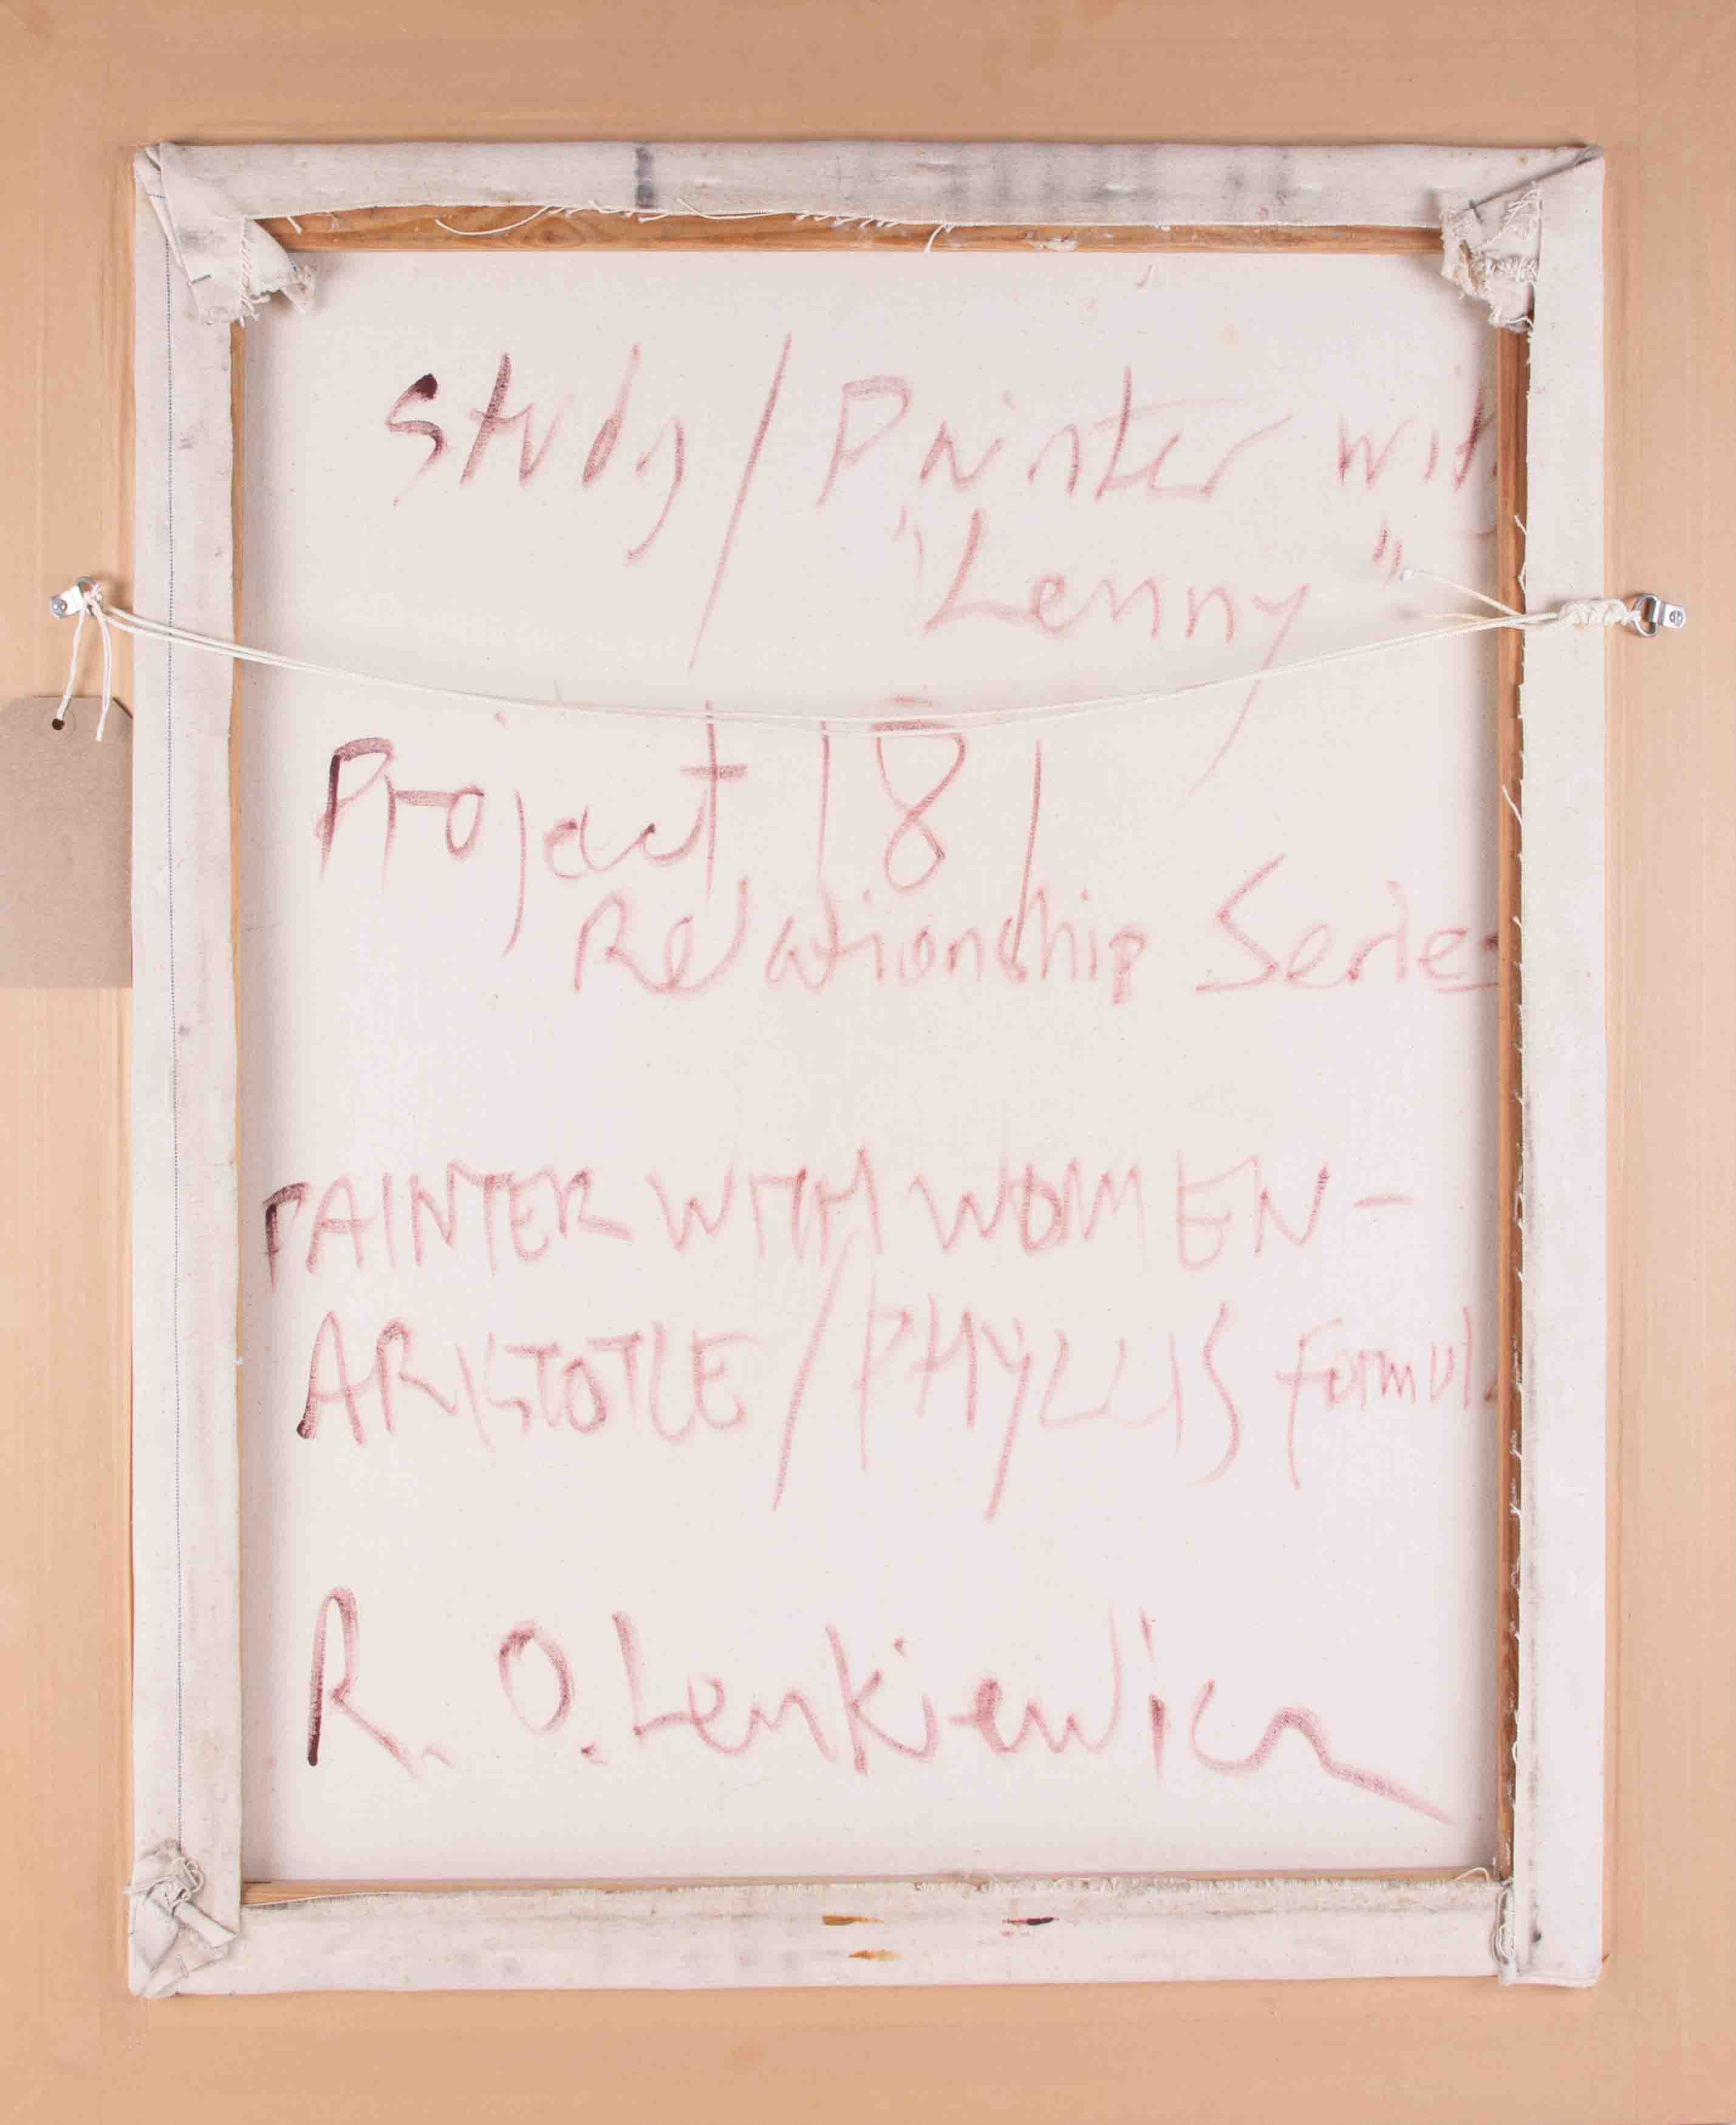 Study / Painter with
"Lenny"
Project 18
Relationship Series
PAINTER WITH WOMEN –
ARISTOTLE / PHYLLIS formula
R. O. Lenkiewicz